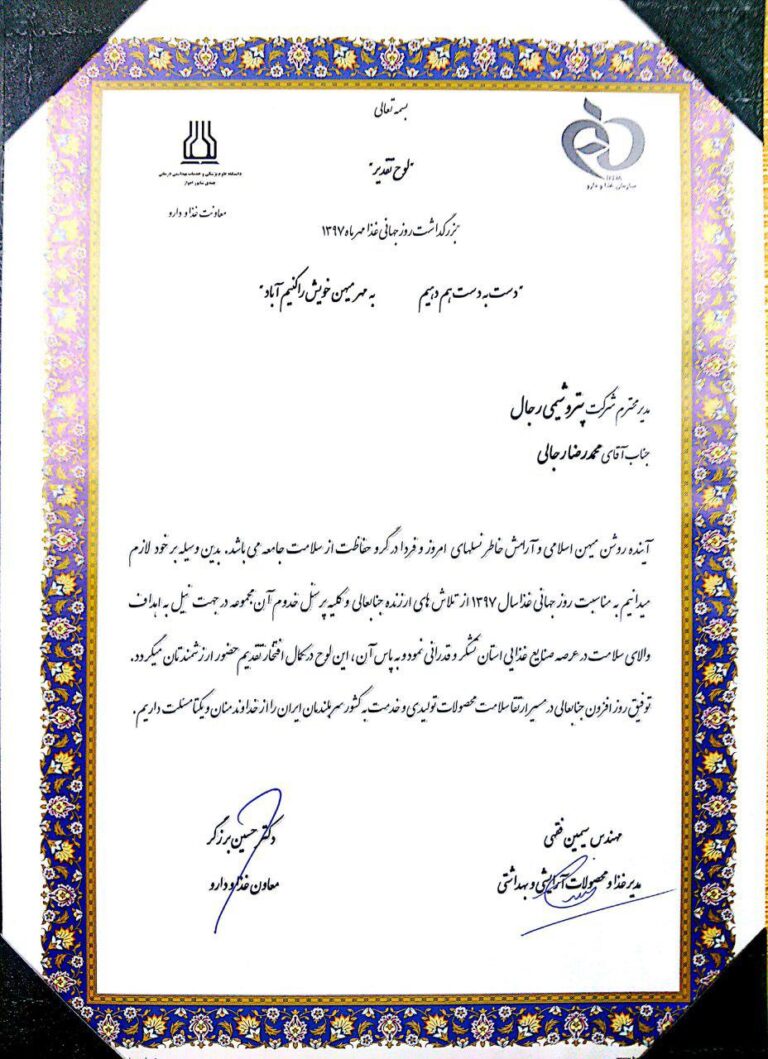 بسمه تعالی
IFDA
سازمان غذا و دارو
دانشگاه علوم پزشکی و خدمات بهداشتی درمانی
جندی شاپور اهواز
معاونت غذا و دارو
"لوح تقدیر"
بزرگداشت روز جهانی غذا مهر ماه ۱۳۹۷
"دست به دست هم دهیم به مهر میهن خویش را کنیم آباد"
مدیر محترم شرکت پتروشیمی رجال
جناب آقای محمدرضا رجالی
آینده روشن میهن اسلامی و آرامش خاطر نسلهای امروز و فردا در گرو حفاظت از سلامت جامعه می باشد. بدین وسیله بر خود لازم
میدانیم به مناسبت روز جهانی غذا سال ۱۳۹۷ از تلاش های ارزنده جنابعالی و کلیه پرسنل خدوم آن مجموعه در جهت نیل به اهداف
والای سلامت در عرصه صنایع غذایی استان تشکر و قدردانی نموده و به پاس آن، این لوح در کمال افتخار تقدیم حضور ارزشمندتان میگردد.
توفیق روز افزون جنابعالی در مسیر ارتقا سلامت محصولات تولیدی و خدمت به کشور سربلندمان ایران را از خداوند منان و یکتا مسئلت داریم.
مهندس سیمین فقهی
مدیر غذا و محصولات آرایشی و بهداشتی
دکتر حسین برزگر
معاون غذا و دارو